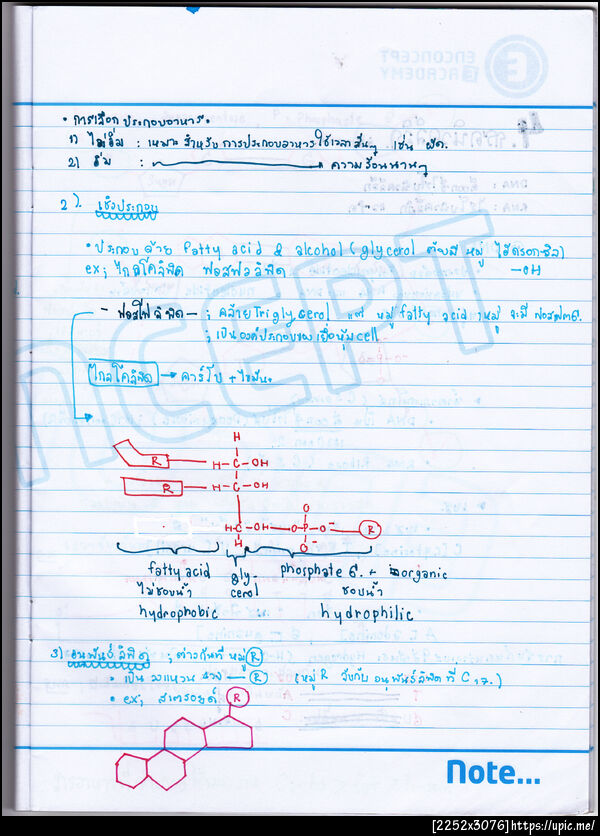 • การเลือกประกอบอาหาร
1) ไม่อิ่ม : เหมาะสำหรับการประกอบอาหารใช้เวลาสั้นๆ เช่น ผัด.
2) อิ่ม : ความร้อนนานๆ
2). เชิงประกอบ
• ประกอบด้วย fatty acid & alcohol (glycerol ต้องมี หมู่ ไฮดรอกซิล)
ex; ไกลโคลิพิด ฟอสฟอลิพิด -OH
- ฟอสโฟลิพิด - ; คล้าย Triglycerol แต่ หมู่ fatty acid 1 หมู่ จะมี ฟอสเฟต
; เป็นองค์ประกอบของเยื่อหุ้ม cell
ไกลโคลิพิด → คาร์โบ + ไขมัน
H
R H-C-OH
R H-C-OH
O
H-C-OH-O-P-O- R
H O-
fatty acid gly- phosphate G. + organic
ไม่ชอบน้ำ cerol ชอบน้ำ
hydrophobic hydrophilic
3) อนุพันธ์ลิพิด ; ต่างกันที่ หมู่ R
• เป็น วงแหวน R (หมู่ R จับกับ อนุพันธ์ลิพิดที่ C 17.)
• ex; สเตรอยด์ R
Note...
[2252x3076]https://upic.me/